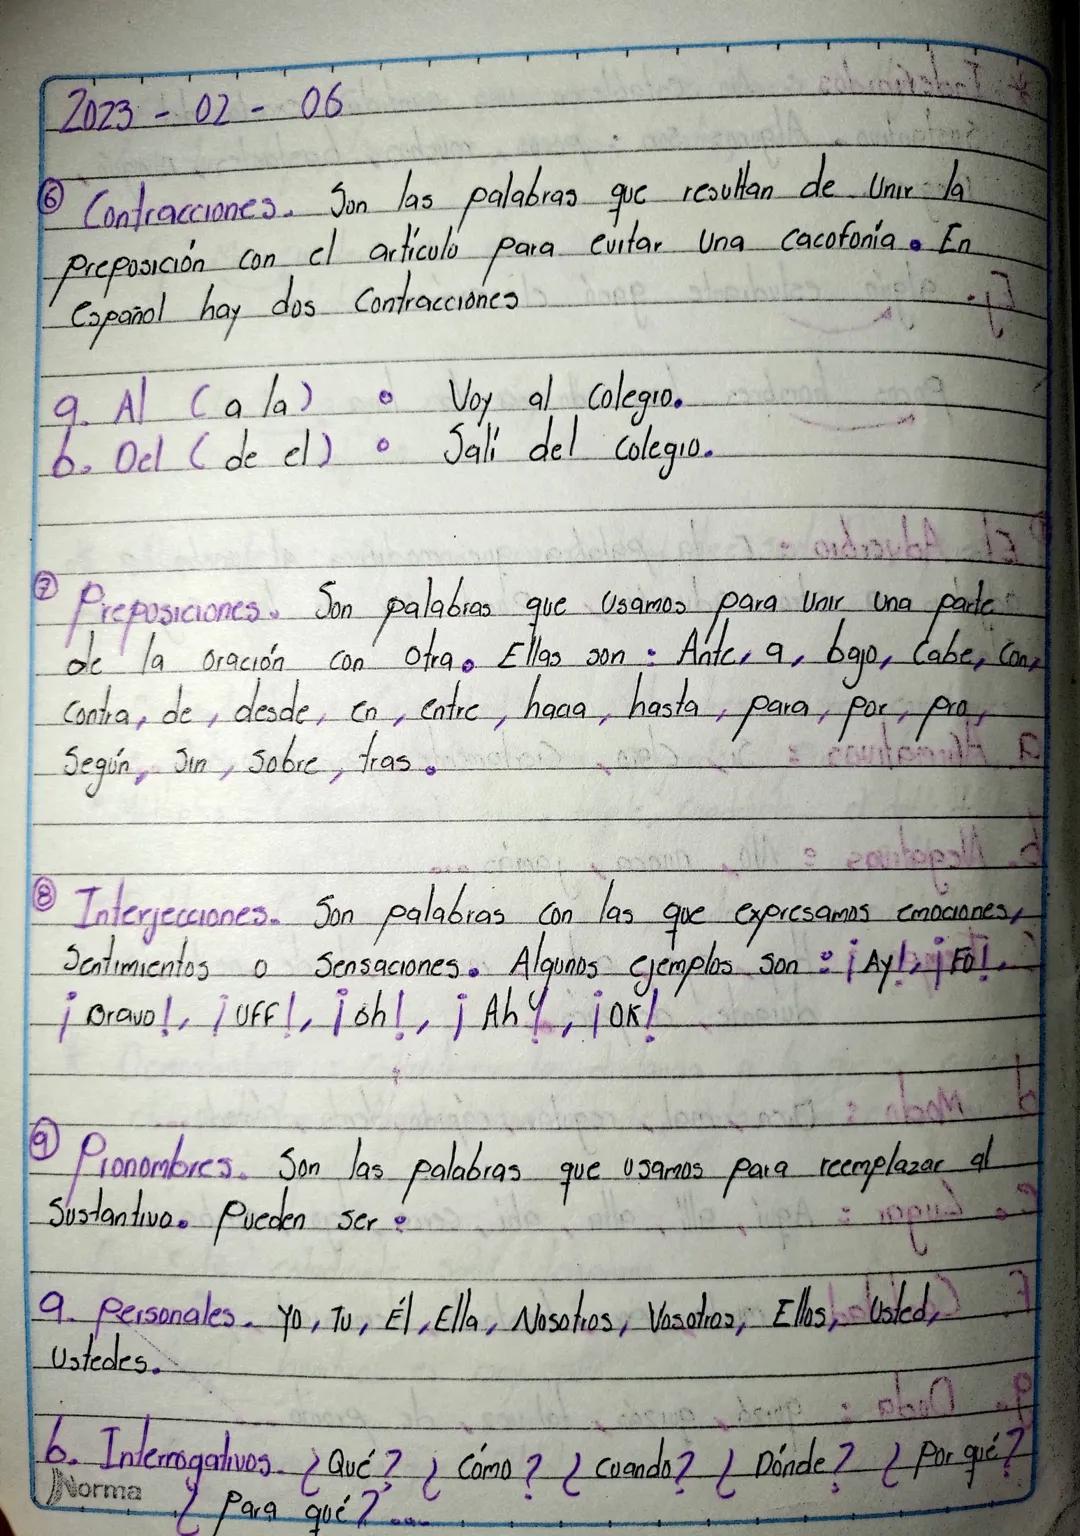 2023 - 02 - 06
⑥ Contracciones. Son las palabras que resultan de unir la
preposición con el artículo para evitar una cacofonía. En
Español hay dos contracciones
a. Al (a la) • Voy al colegio.
b. Del (de el) • Salí del colegio.
⑦ Preposiciones. Son palabras que usamos para unir una parte
de la oración con otra. Ellas son: Ante, a, bajo, Cabe, con,
contra, de, desde, en, entre, hacia, hasta, para, por, pro,
Según, Sin, Sobre, tras.
⑧ Interjecciones. Son palabras con las que expresamos emociones,
Sentimientos o Sensaciones. Algunos ejemplos son: ¡Ay!, ¡Fo!,
¡Bravo!, ¡UFF!, ¡oh!, ¡Ah!, ¡OK!
⑨ Pronombres. Son las palabras que usamos para reemplazar al
Sustantivo. Pueden ser:
a. Personales. Yo, Tu, Él, Ella, Nosotros, Vosotros, Ellos, Usted,
Ustedes.
b. Interrogativos. ¿Qué? ¿Cómo? ¿Cuando? ¿Dónde? ¿Por qué?
Norma
¿Para qué?...